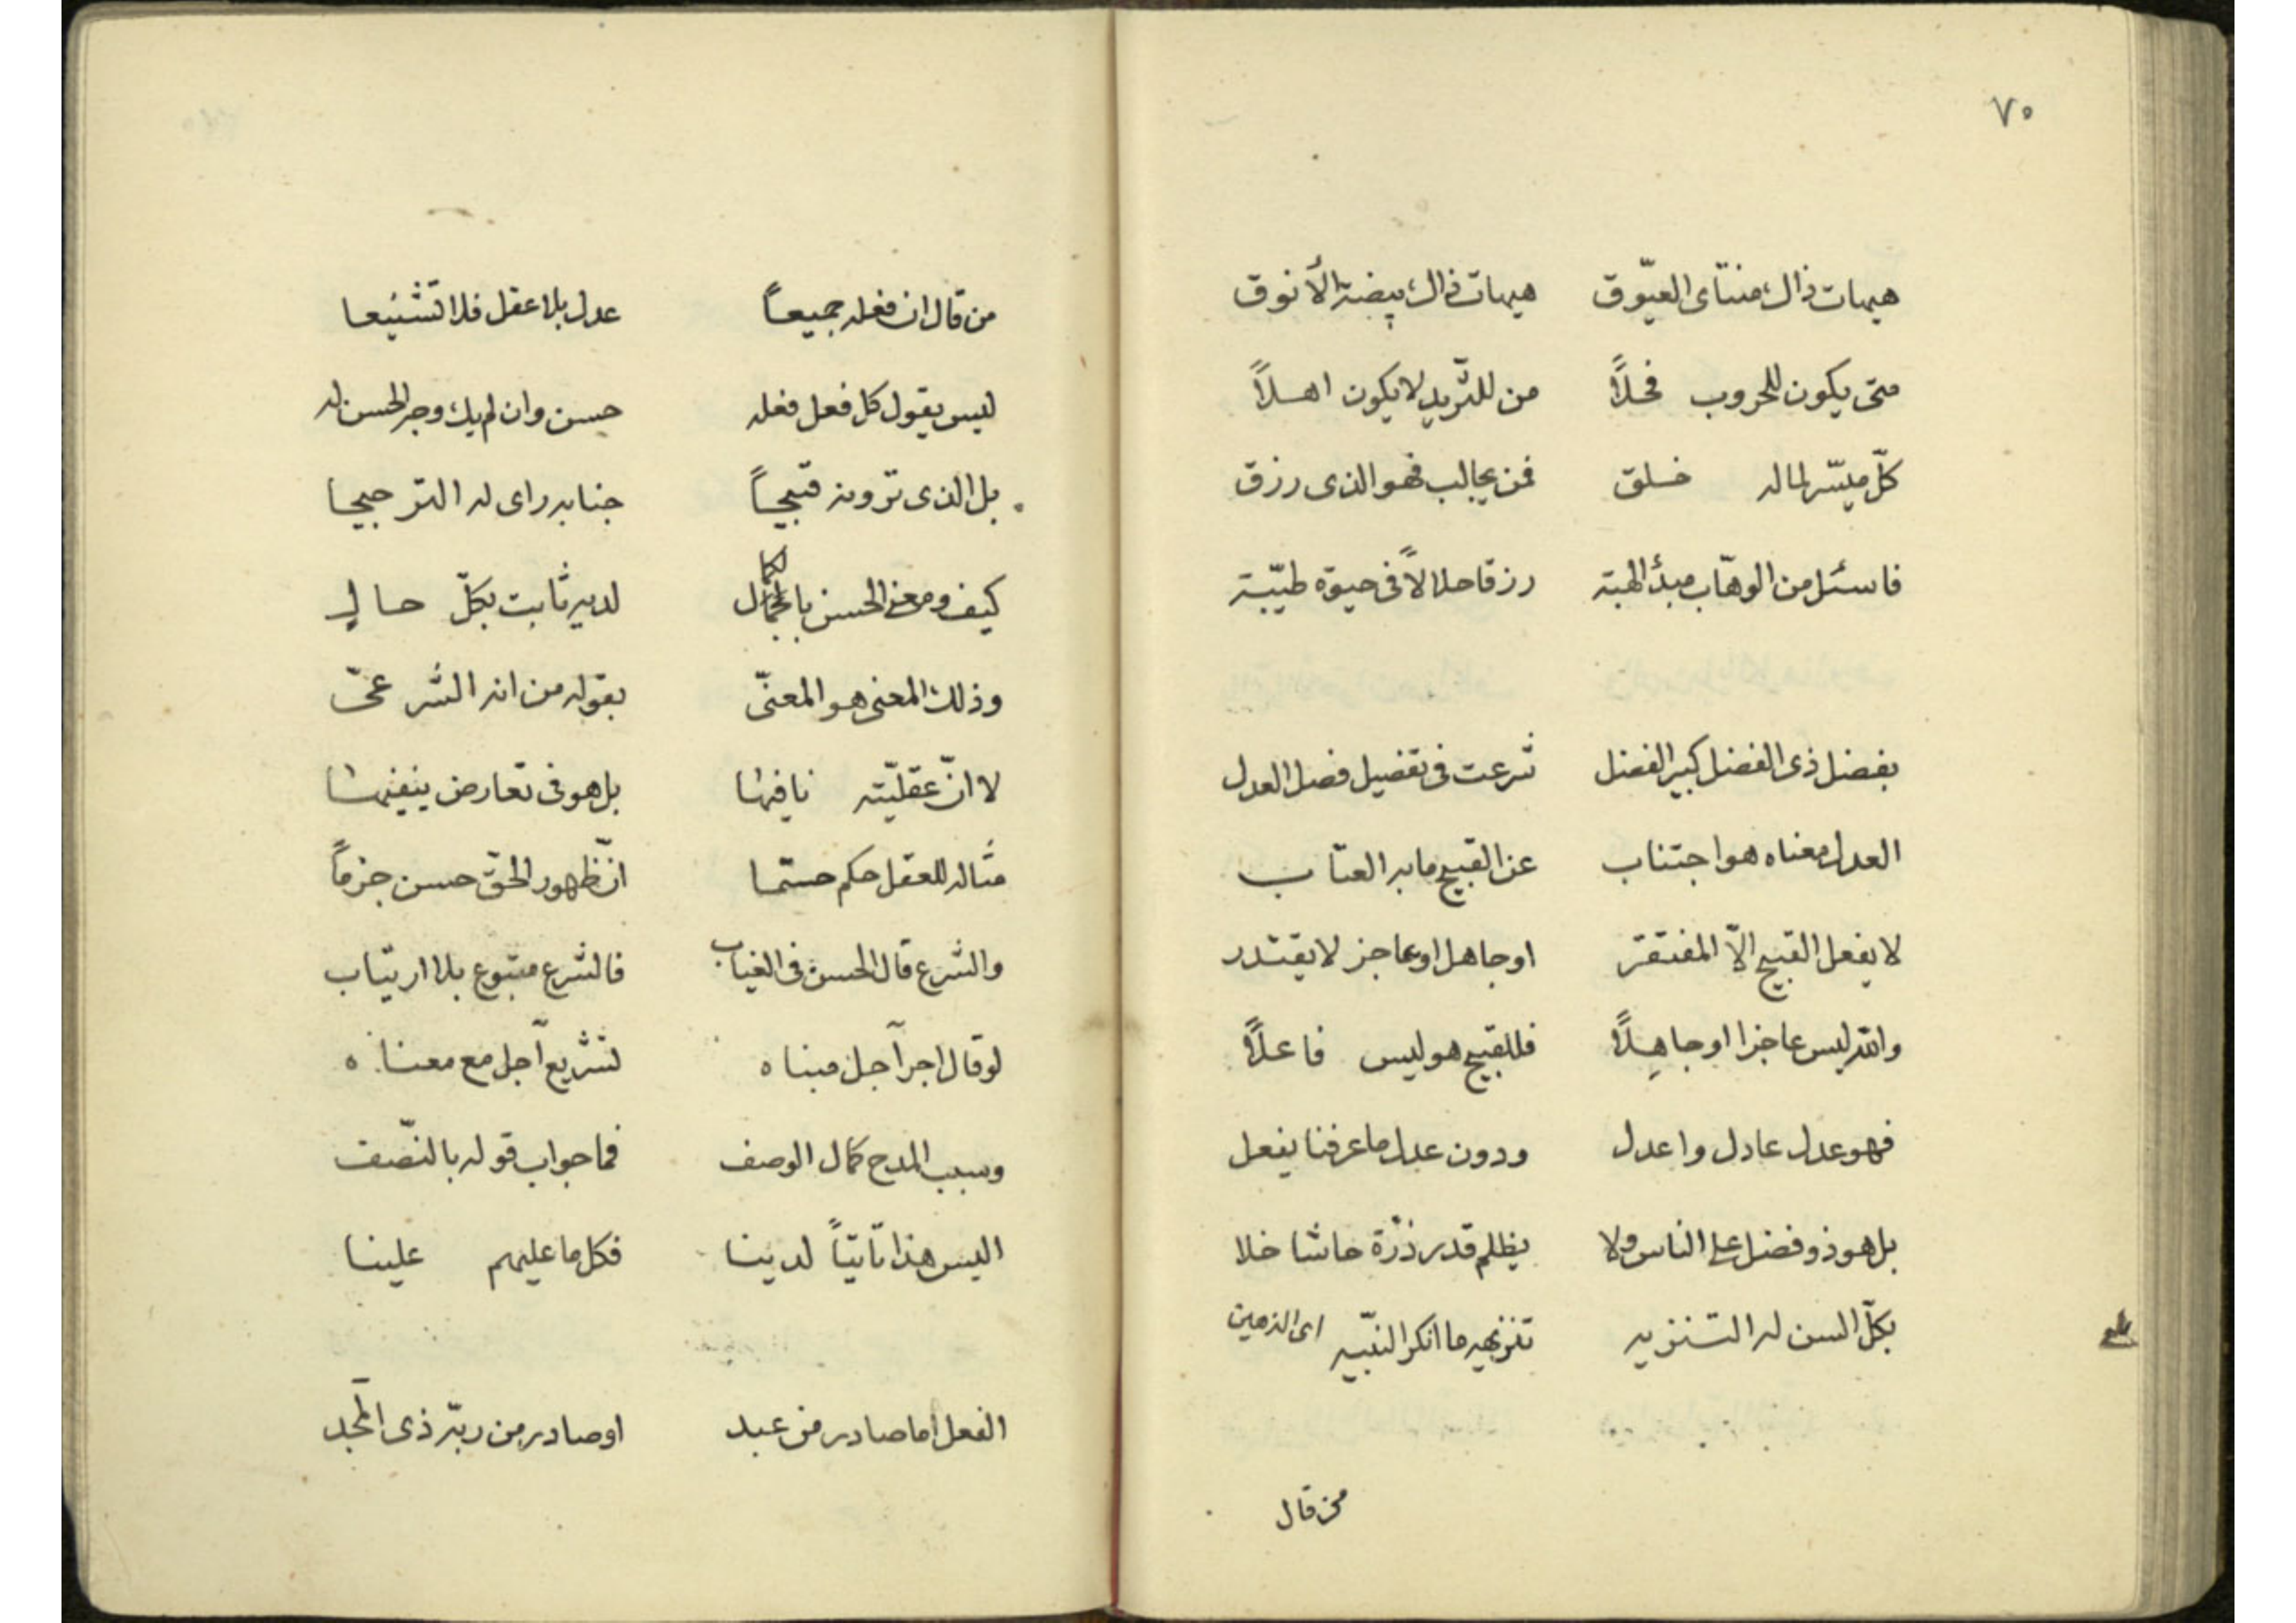 ٧٠
هيهات ذاك منتأى العيّوق هيهات ذاك بيضة الأنوق
متى يكون للحروب فحلاً من للثّريد لا يكون اهلاً
كلّ ميسّر لما له خلق فمن يجالب فهو الذى رزق
فاسئل من الوهّاب مبدأ الهبة رزقا حلالاً فى حيوة طيّبة
بفضل ذى الفضل كبير الفضل شرعت فى تفضيل فصل العدل
العدل معناه هو اجتناب عن القبيح ما به العتاب
لا يفعل القبيح الّا المفتقر او جاهل او عاجز لا يقتدر
والله ليس عاجزا او جاهِلاً فللقبيح هو ليس فاعلاً
فهو عدل عادل واعدل ودون عدل ما عرفنا يفعل
بل هو ذو فضل على الناس ولا يظلم قدر ذرّة حاشا خلا
بكلّ السن له التنزيه تنزيهه ما انكر النبّيه اى الذمين
من قال
من قال ان فعله جميعاً عدل بلا عقل فلا تشنيعا
ليس يقول كل فعل فعله حسن وان لم يك وجه الحسن له
بل الذى ترونه قبيحاً جنابه راى له الترجيحا
كيف ومعنى الحسن بالكمال لديه ثابت بكلّ حال
وذلك المعنى هو المعنّى بقوله من انه الشرعىّ
لا انّ عقليّته نافيها بل هو فى تعارض ينفيها
مثاله للعقل حكم حتما انّ ظهور الحقّ حسن جزماً
والشرع قال الحسن فى الغياب فالشرع متبوع بلا ارتياب
لو قال اجر آجل مبناه لتشريع آجل مع معناه
وسبب المدح كمال الوصف فما جواب قوله بالنّصف
اليس هذا تأتيّاً لدينا فكل ما عليهم علينا
الفعل اما صادر من عبد او صادر من ربّه ذى المجد